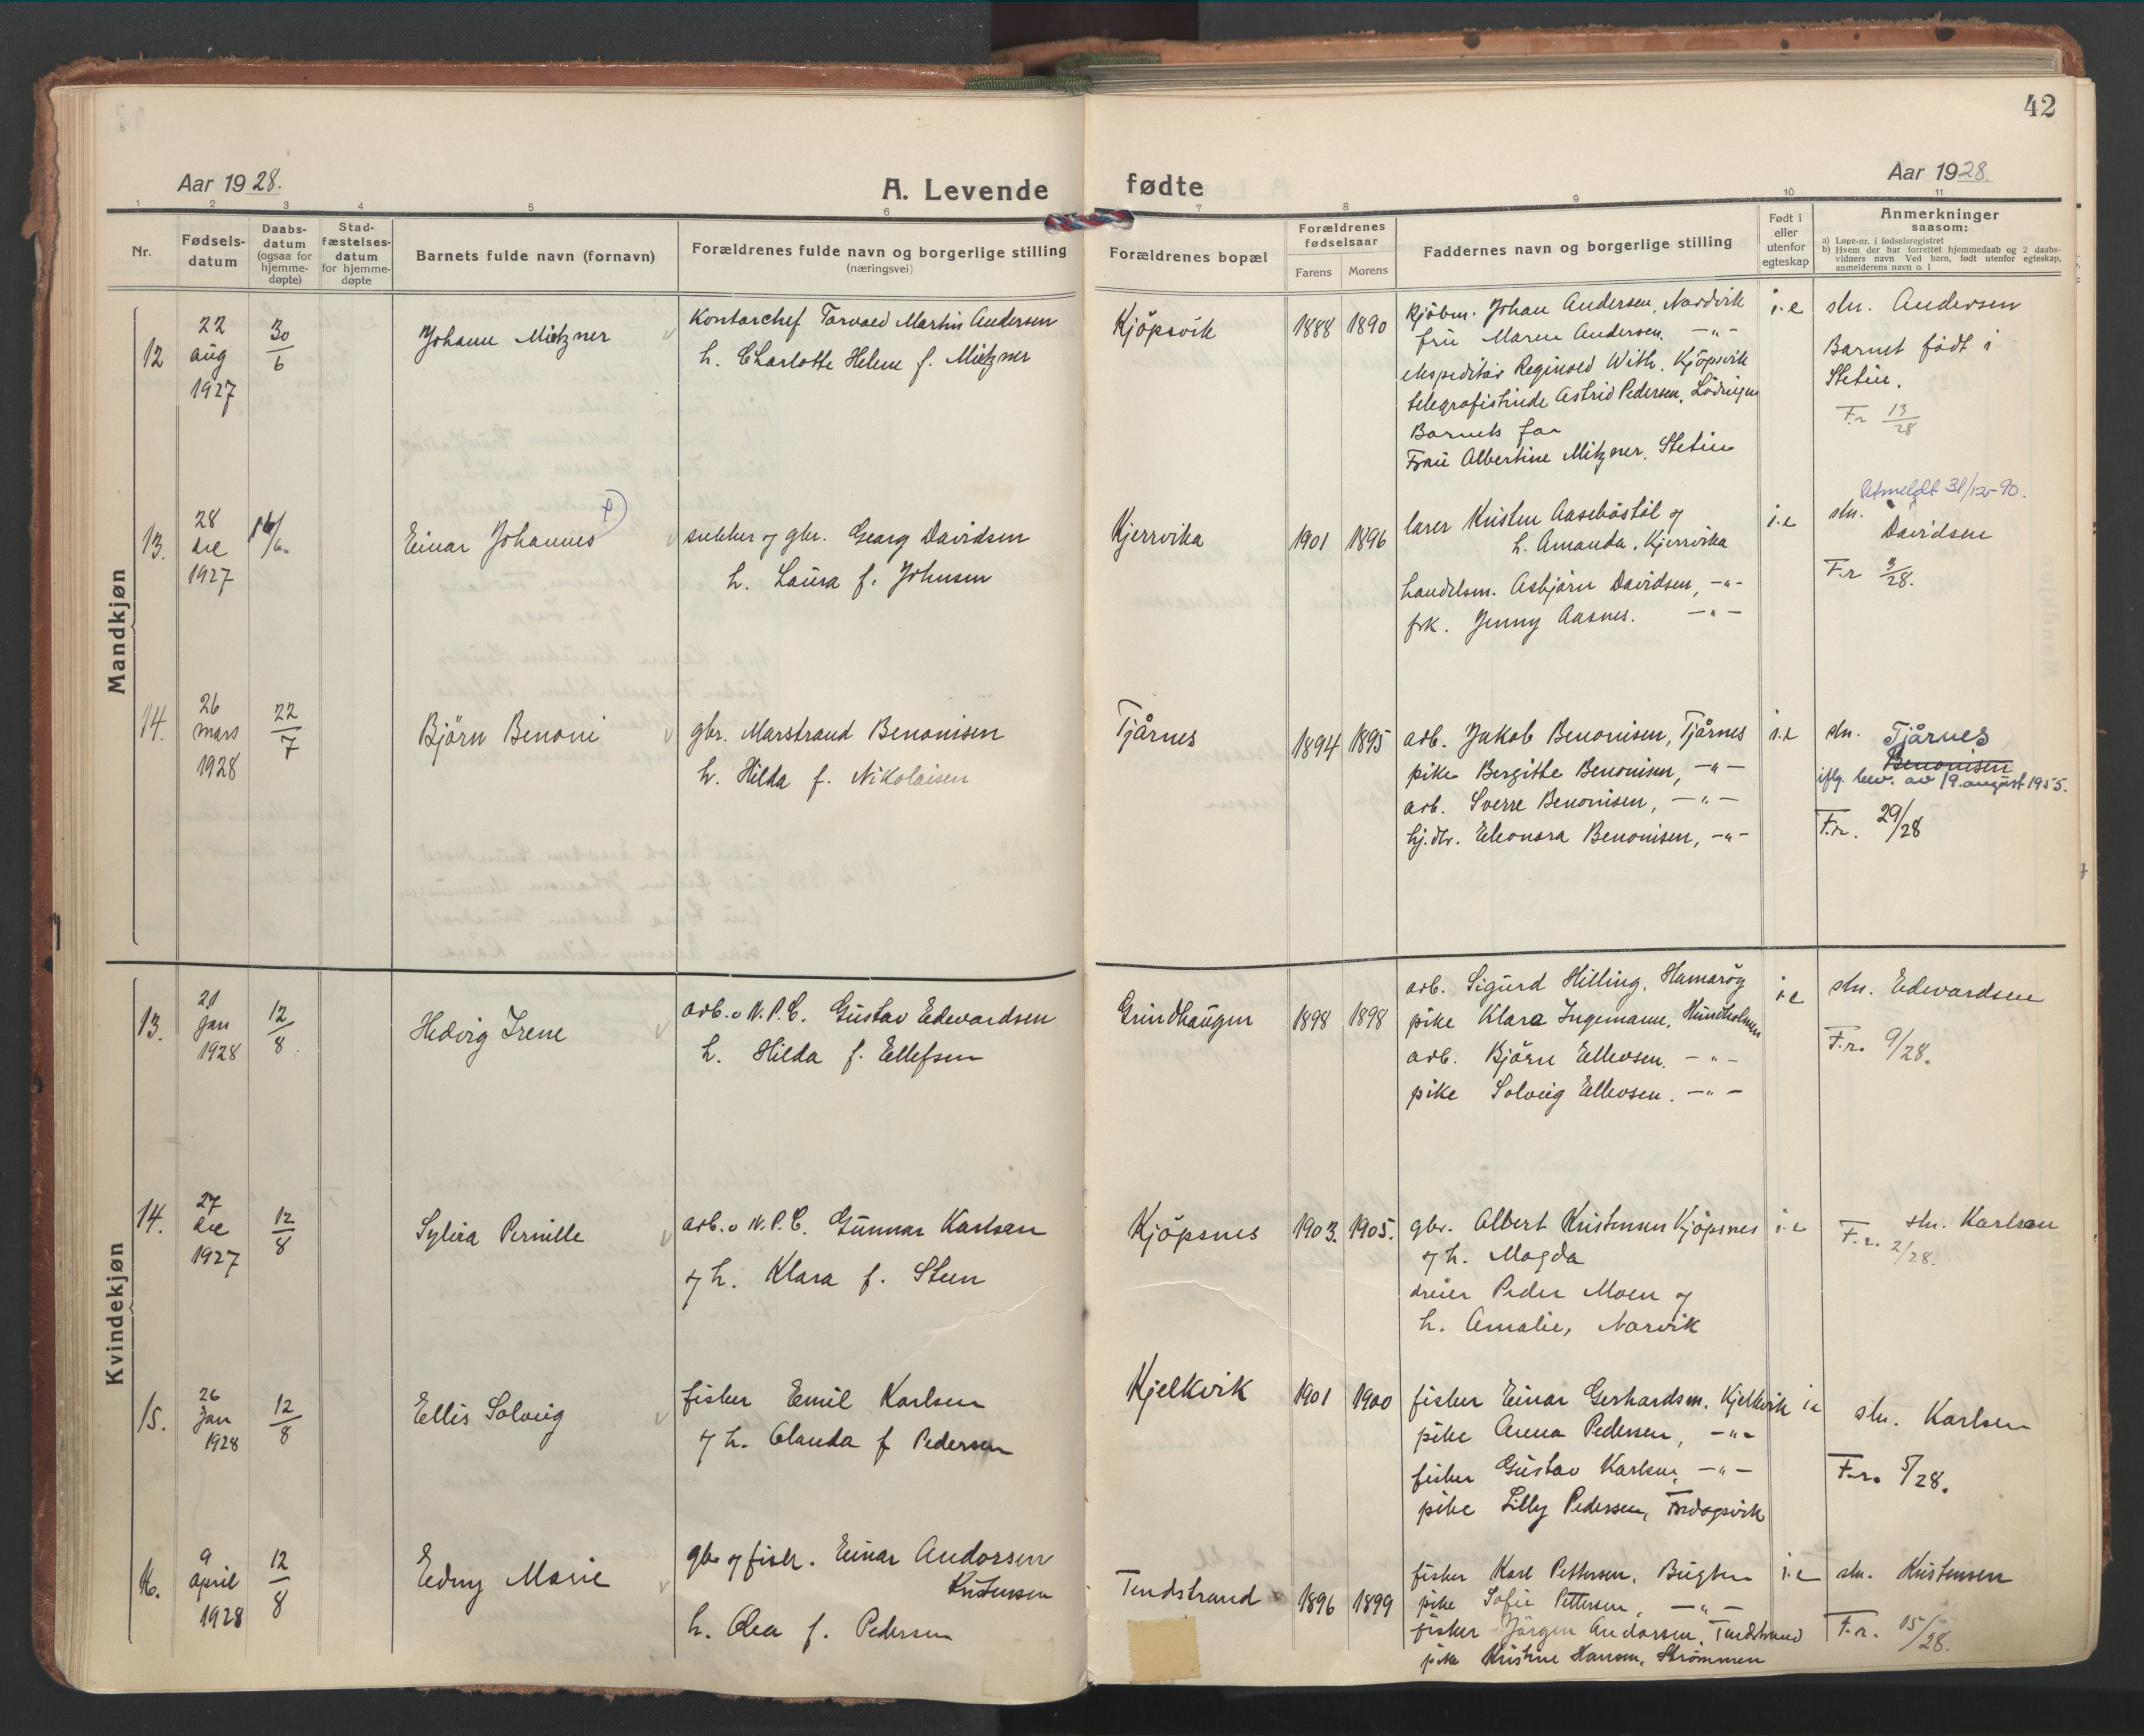 42
Aar 1928.
A. Levende fødte
Aar 1928.
1 2 3 4 5 6 7 8 9 10 11
Nr.
Fødsels-
datum
Daabs-
datum
(ogsaa for
hjemme-
døpte)
Stad-
fæstelses-
datum
for hjemme-
døpte
Barnets fulde navn (fornavn)
Forældrenes fulde navn og borgerlige stilling
(næringsvei)
Forældrenes bopæl
Forældrenes
fødselsaar
Farens Morens
Faddernes navn og borgerlige stilling
Født i
eller
utenfor
egteskap
Anmerkninger
saasom:
a) Løpe-nr. i fødselsregistret
b) Hvem der har forrettet hjemmedaab og 2 daabs-
vidners navn Ved barn, født utenfor egteskap,
anmelderens navn o. l
Mandkjøn
12
22
aug
1927
30/6
Johann Mietzner
Kontorchef Torvald Martin Andersen
h. Charlotte Helene f. Mietzner
Kjöpsvik
1888 1890
Kjöbm. Johan Andersen, Nordvik
fru Maren Andersen. -"-
ekspeditör Reginold With, Kjöpsvik
telegrafistinde Astrid Pedersen, Lödingen
Barnets far
Frau Albertine Mitzner, Stetin
i.e
stn. Andersen
Barnet födt i
Stetin.
F.r 13/28
13.
28
dec
1927
16/6.
Einar Johannes
snekker og gbr. Georg Davidsen
h. Laura f. Johnsen
Kjerrvika
1901 1896
lærer Kristen Aasebøstøl og
h. Amanda, Kjerrvika
handelsm. Asbjörn Davidsen, -"-
frk. Jenny Aasnes. -"-
i.e
Utmeldt 31/12-90.
stn.
Davidsen
F.r 3/28.
14.
26
mars
1928
22/7
Björn Benoni
gbr. Marstrand Benonisen
h. Hilda f. Nikolaisen
Tjårnes
1894 1895
arb. Jakob Benonisen, Tjårnes
pike Bergitte Benonisen, -"-
arb. Sverre Benonisen, -"-
hj.dtr. Eleonora Benonisen, -"-
i.e
stn. Tjårnes
Benonisen
iflg. bev. av 19. august 1955.
F.r. 29/28
Kvindekjøn
13.
21
jan
1928
12/8.
Hedvig Irene
arb. v N.P.C. Gustav Edwardsen
h. Hilda f. Ellefsen
Grindhaugen
1898 1898
arb. Sigurd Hilling, Hamaröy
pike Klara Ingemann, Hundholmen
arb. Björn Ellevsen. -"-
pike Solveig Ellevsen. -"-
i e
stn. Edwardsen
F.r. 9/28.
14.
27
dec
1927
12/8
Sylvia Pernille
arb. v N.P.C. Gunnar Karlsen
og h. Klara f. Steen
Kjöpsnes
1903. 1905.
gbr. Albert Kristensen Kjöpsnes
og h. Magda
dreier Peder Moen og
h. Amalie, Narvik
i.e
stn. Karlsen
F.r. 2/28.
15.
26
Jan
1928
12/8
Ellis Solveig
fisker Emil Karlsen
og h. Olanda f Pedersen
Kjelkvik
1901 1900
fisker Einar Gerhardsen. Kjelkvik
pike Anna Pedersen, -"-
fisker Gustav Karlsen, -"-
pike Lilly Pedersen,
i e
stn. Karlsen
F.r. 5/28.
16.
9
april
1928
12/8
Edny Marie
gbr og fisk. Einar Andorsen
Kristensen
h. Olea f. Pedersen
Tendstrand
1896 1899
fisker Karl Pettersen, Bugten
pike Sofie Pettersen, -"-
fisker Jörgen Andorsen, Tendstrand
pike Kristine Hansen, Strömmen
i.e
stn. Kristensen
F.r. 15/28.